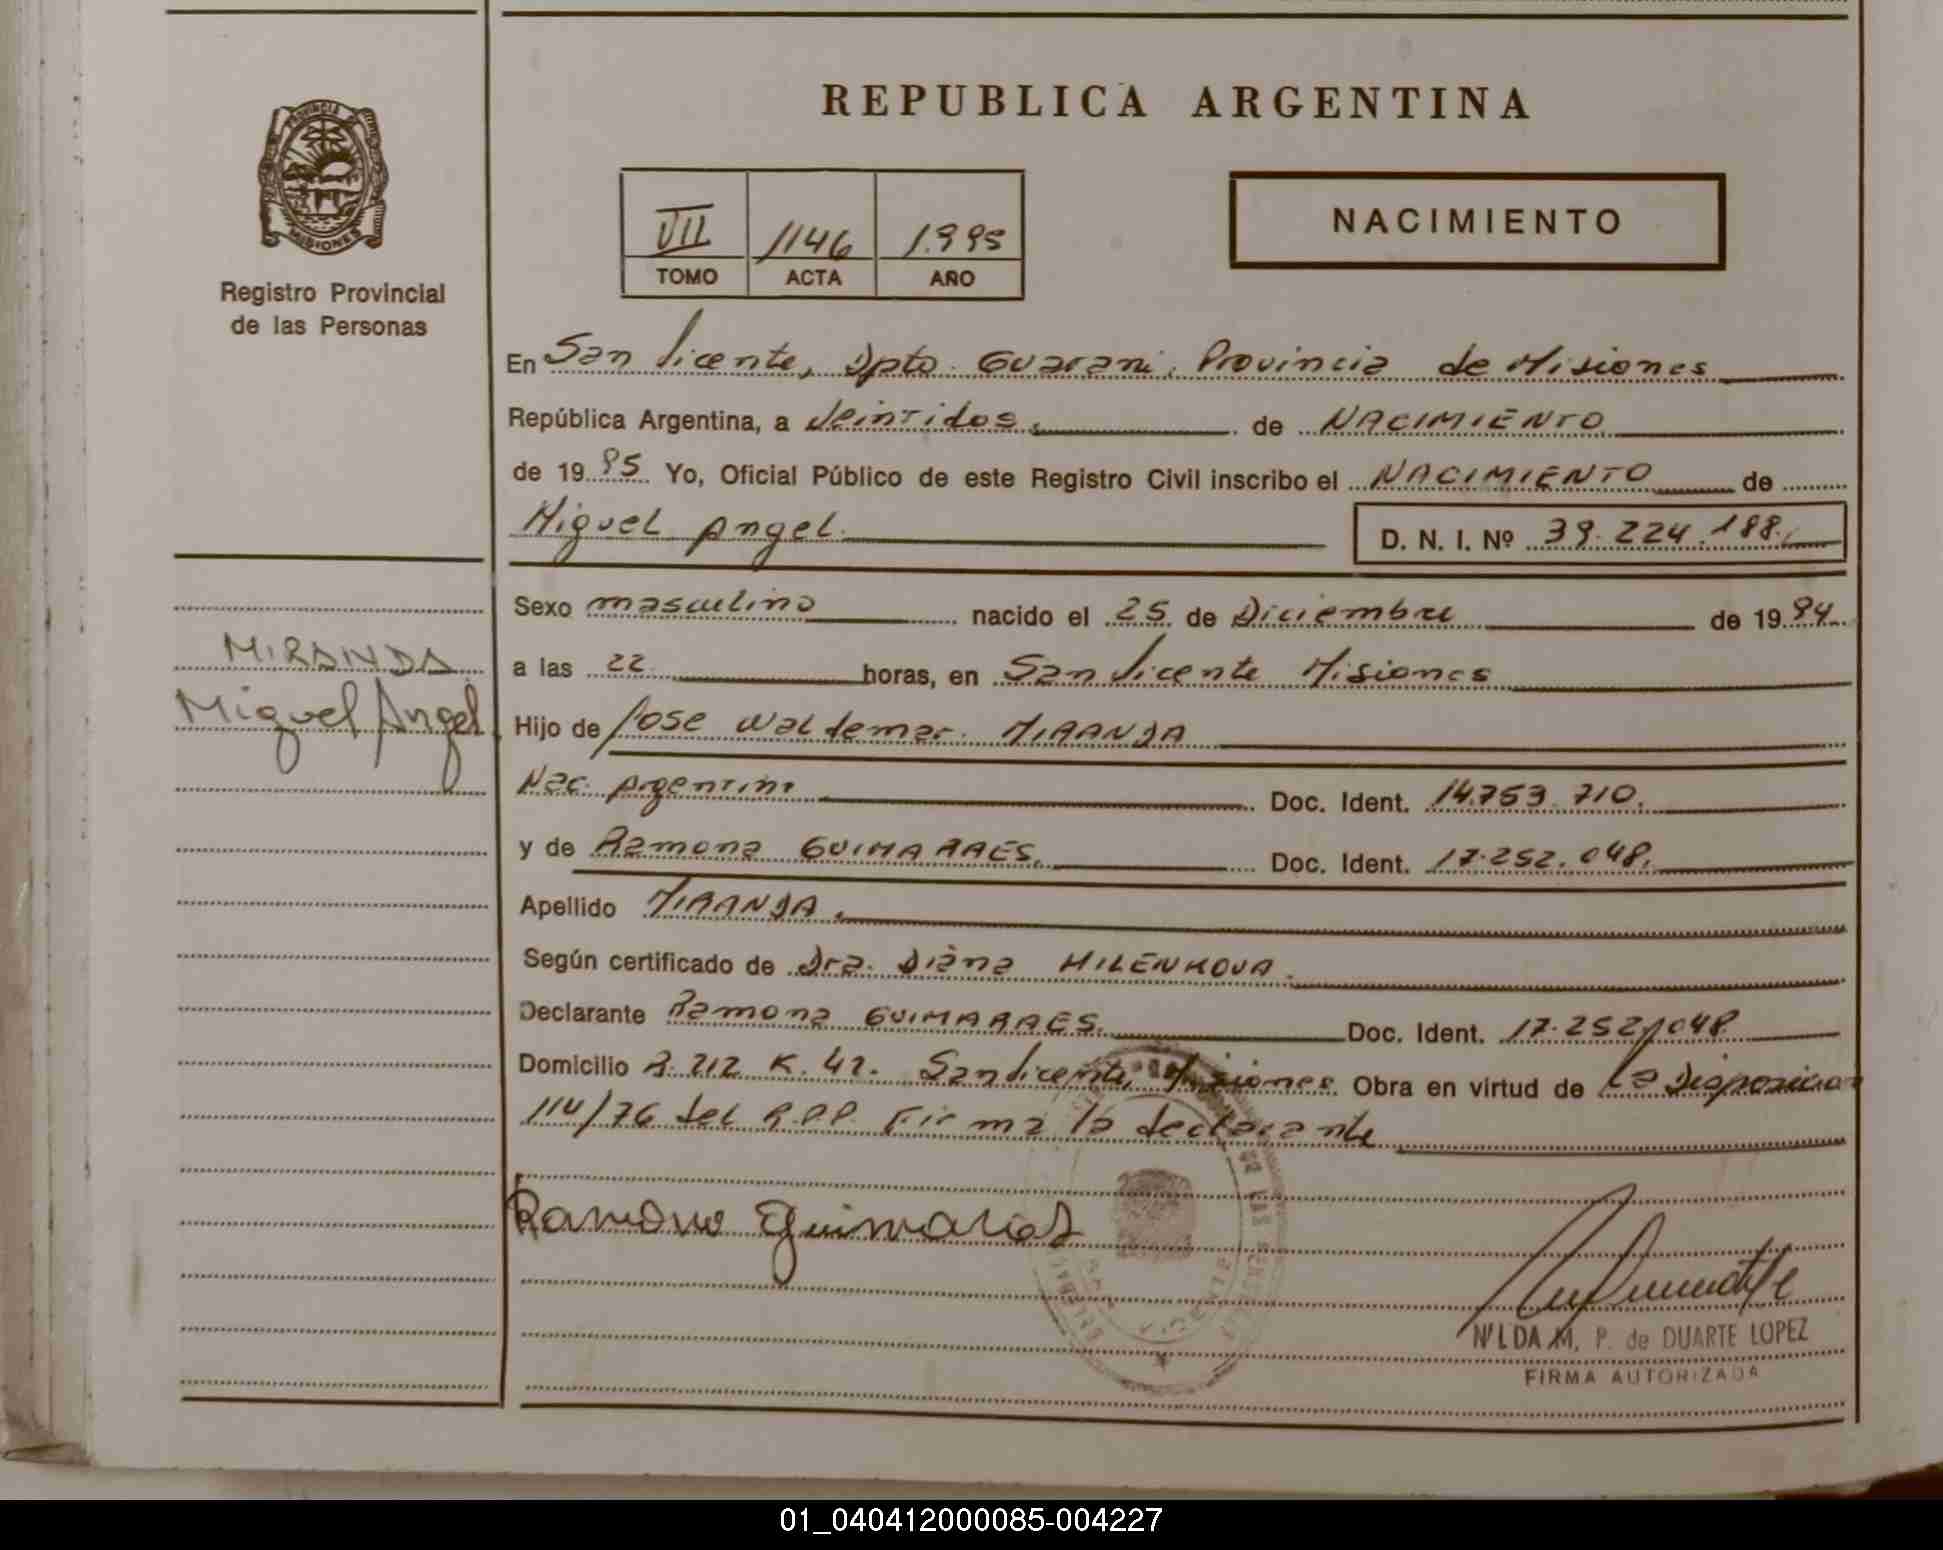 REPUBLICA ARGENTINA
PROVINCIA DE
MISIONES
Registro Provincial
de las Personas
VII 1146 1.995
TOMO ACTA AÑO
NACIMIENTO
En San Vicente, Dpto. Guarani. Provincia de Misiones
República Argentina, a Veintidos. de NACIMIENTO
de 19 95 Yo, Oficial Público de este Registro Civil inscribo el NACIMIENTO de
Miguel Angel. D. N. I. Nº 39.224.188.
Sexo masculino nacido el 25 de Diciembre de 19 94
a las 22 horas, en San Vicente Misiones
MIRANDA
Miguel Angel
Hijo de Jose Waldemar. MIRANDA
Nac. Argentino Doc. Ident. 14.753.710.
y de Ramona GUIMARAES. Doc. Ident. 17.252.048.
Apellido MIRANDA.
Según certificado de Dra. Diana MILENKOVA.
Declarante Ramona GUIMARAES. Doc. Ident. 17.252.048
Domicilio R. 212 K. 42. San Vicente, Misiones. Obra en virtud de La Disposicion
114/76 del R.P.P. Firma la declarante
Ramona Guimaraes
NILDA M. P. de DUARTE LOPEZ
FIRMA AUTORIZADA
01_040412000085-004227